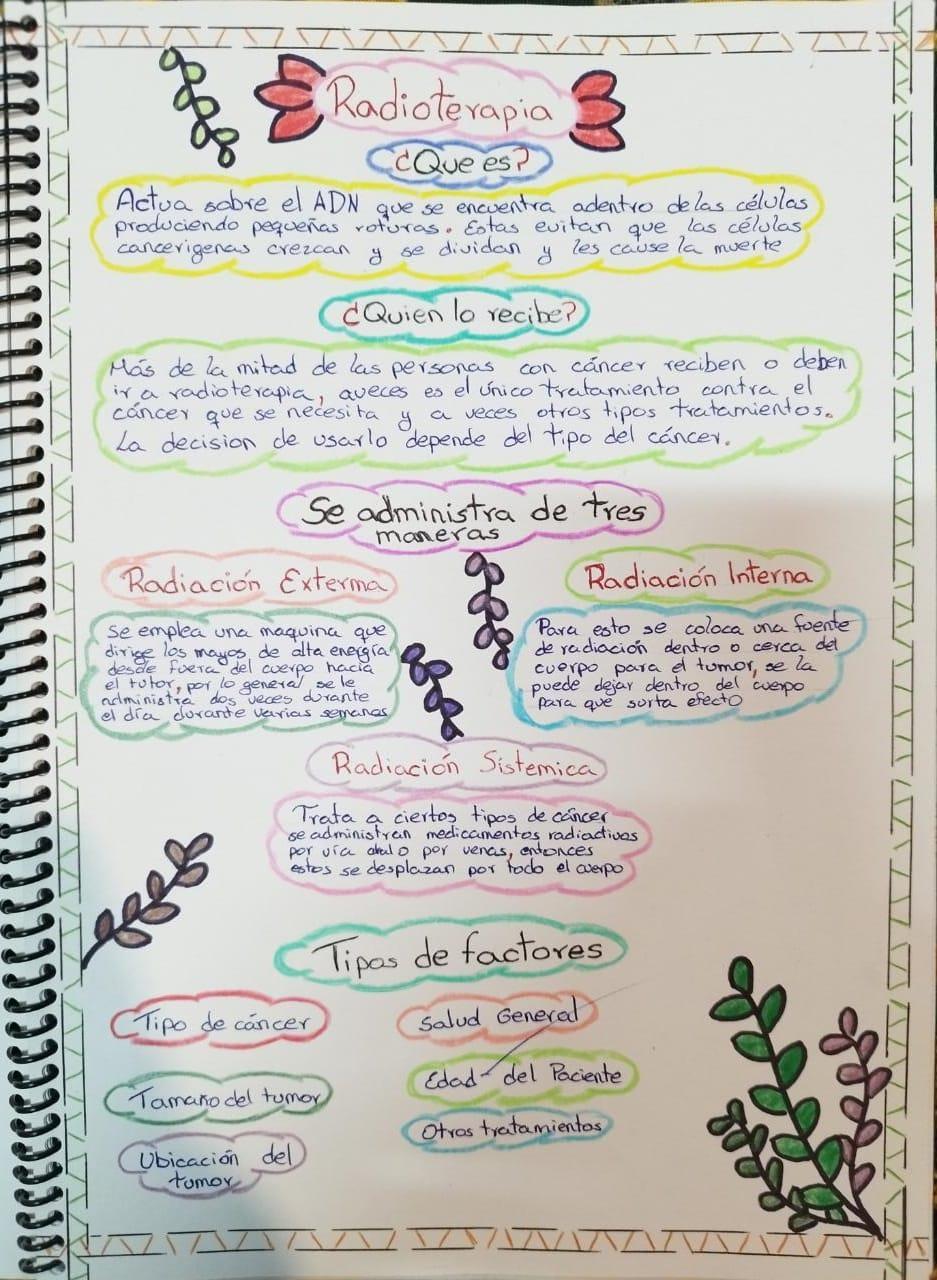 Radioterapia
¿Que es?
Actua sobre el ADN que se encuentra adentro de las células
produciendo pequeñas roturas. Estas evitan que las células
cancerigenas crezcan y se dividan y les cause la muerte
¿Quien lo recibe?
Más de la mitad de las personas con cáncer reciben o deben
ir a radioterapia, aveces es el único tratamiento contra el
cáncer que se necesita y a veces otros tipos tratamientos.
La decision de usarlo depende del tipo del cáncer.
Se administra de tres
maneras
Radiación Externa
Se emplea una maquina que
dirige los mayos de alta energía
desde fuera del cuerpo hacia
el tutor, por lo general se le
administra dos veces durante
el día durante varias semanas
Radiación Interna
Para esto se coloca una fuente
de radiación dentro o cerca del
cuerpo para el tumor, se la
puede dejar dentro del cuerpo
para que surta efecto
Radiación Sistemica
Trata a ciertos tipos de cáncer
se administran medicamentos radiactivos
por vía o por venas, entonces
estos se desplazan por todo el cuerpo
Tipos de factores
Tipo de cáncer
Tamaño del tumor
Ubicación del
tumor
Salud General
Edad del Paciente
Otros tratamientos